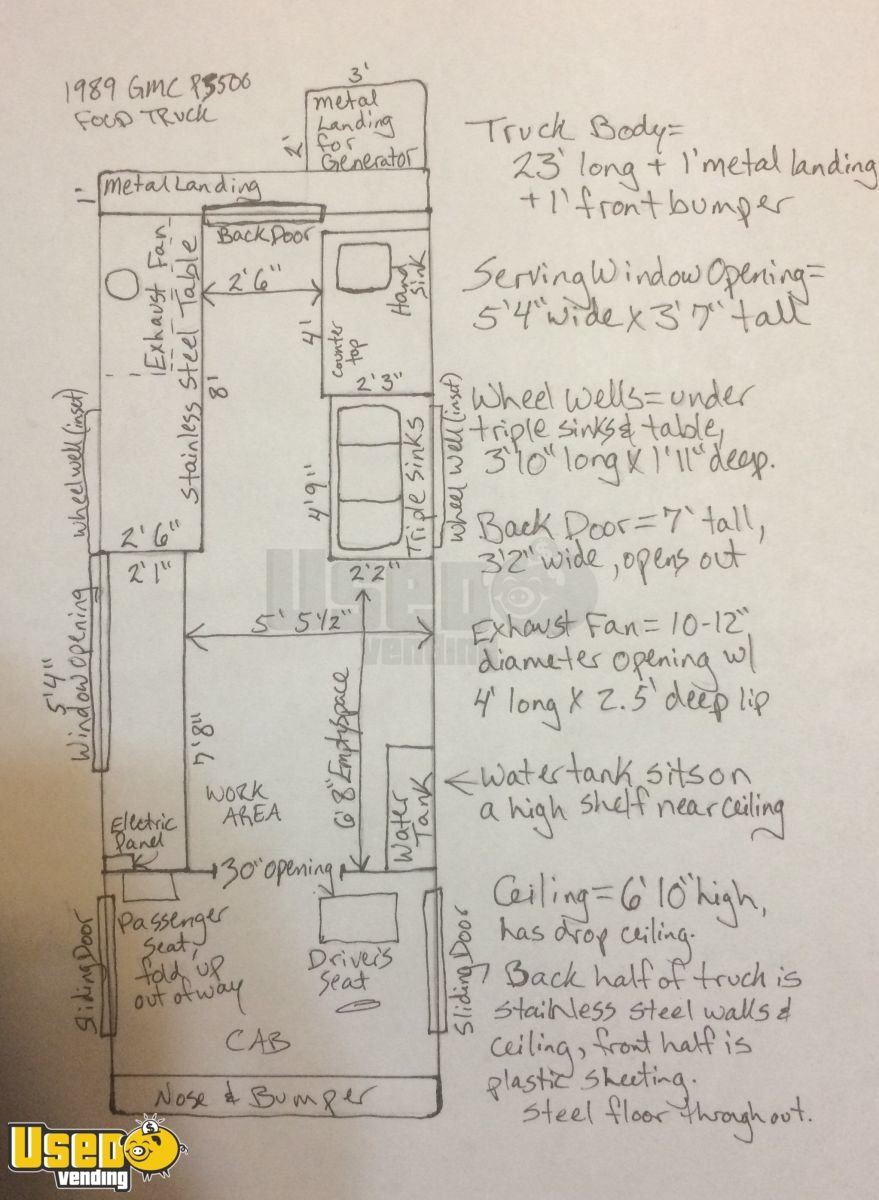 1989 GMC P3500
FOOD TRUCK
3'
2'
Metal
Landing
for
Generator
1'
Metal Landing
Back Door
Exhaust Fan
Stainless Steel Table
8'
2'6"
Hand
Sink
4'
counter
top
2'3"
Wheel well (inset)
Triple Sinks
4'9"
Wheel Well (inset)
2'6"
2'1"
2'2"
5'4"
Window opening
5' 5 1/2"
7'8"
6'8" Empty space
WORK
AREA
Water
Tank
Electric
Panel
30" opening
Sliding Door
Passenger
Seat,
fold up
out of way
Driver's
Seat
Sliding Door
CAB
Nose & Bumper
Truck Body=
23' long + 1' metal landing
+ 1' front bumper
Serving Window Opening=
5'4" wide X 3'7" tall
Wheel Wells= under
triple sinks & table,
3'10" long X 1'11" deep.
Back Door= 7' tall,
3'2" wide, opens out
Exhaust Fan= 10-12"
diameter opening w/
4' long X 2.5' deep lip
Water tank sits on
a high shelf near ceiling
Ceiling= 6'10" high,
has drop ceiling.
Back half of truck is
stainless steel walls &
ceiling, front half is
plastic sheeting.
Steel floor throughout.
USED
vending
USED
vending